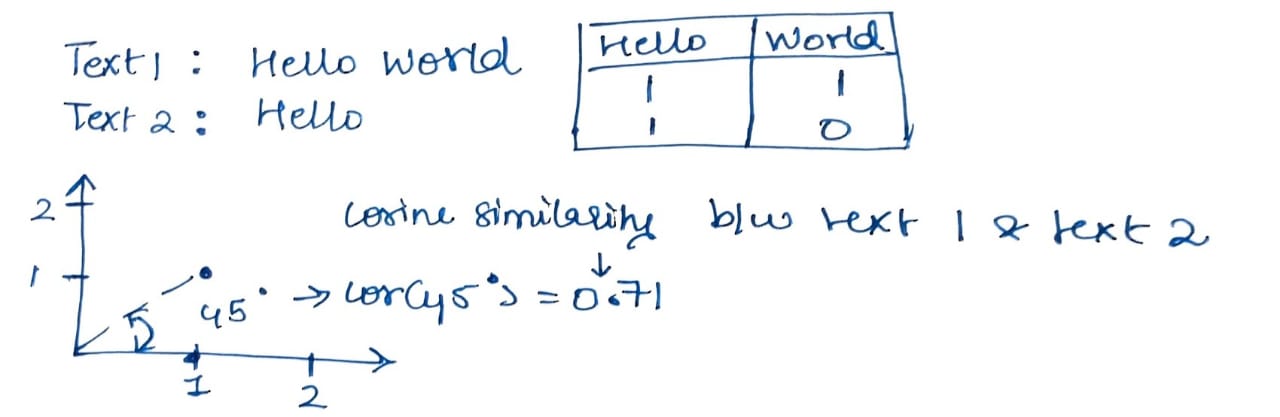 Text 1 : Hello world
Text 2 : Hello
Hello World
1 1
1 0
cosine similarity b/w text 1 & text 2
2
1
45° → cos(45°) = 0.71
1
2